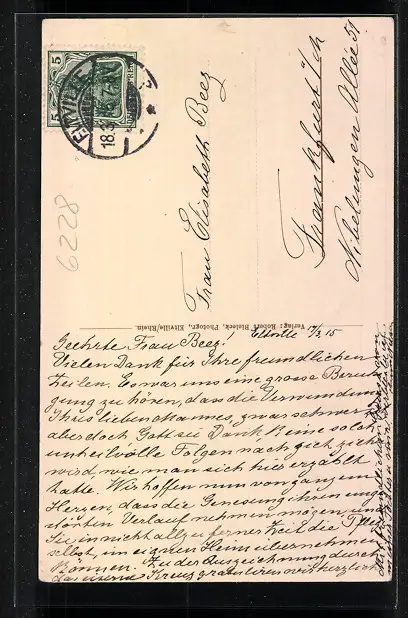 5 5
ELTVILLE
18.3.
Frau Elisabeth Beez
Frankfurt
Nibelungen Allee 51
6228
Verlag: Robert Bieleck, Photogr., Eltville/Rhein.
Eltville 17/3. 15
Geehrte Frau Beez!
Vielen Dank für Ihre freundlichen
Zeilen. Es war uns eine grosse Beruhi
gung zu hören, dass die Verwundung
Ihres lieben Mannes, zwar schwer,
aber doch Gott sei Dank, keine solch
unheilvolle Folgen nach sich zieht
wird, wie man sich hier erzählt
hatte. Wir hoffen nun von ganzem
Herzen, dass die Genesung ihren unge
störten Verlauf nehmen möge, und
Sie in nicht allzu ferner Zeit die Pflege
selbst, im eignen Heim übernehmen
können. Zu der Auszeichnung durch
das eiserne Kreuz gratulieren wir herzlich